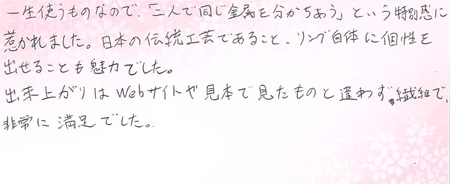 一生使うものなので、「二人で同じ金属を分かちあう」という特別感に
惹かれました。日本の伝統工芸であること、リング自体に個性を
出せることも魅力でした。
出来上がりはWebサイトや見本で見たものと違わず、繊細で、
非常に満足でした。